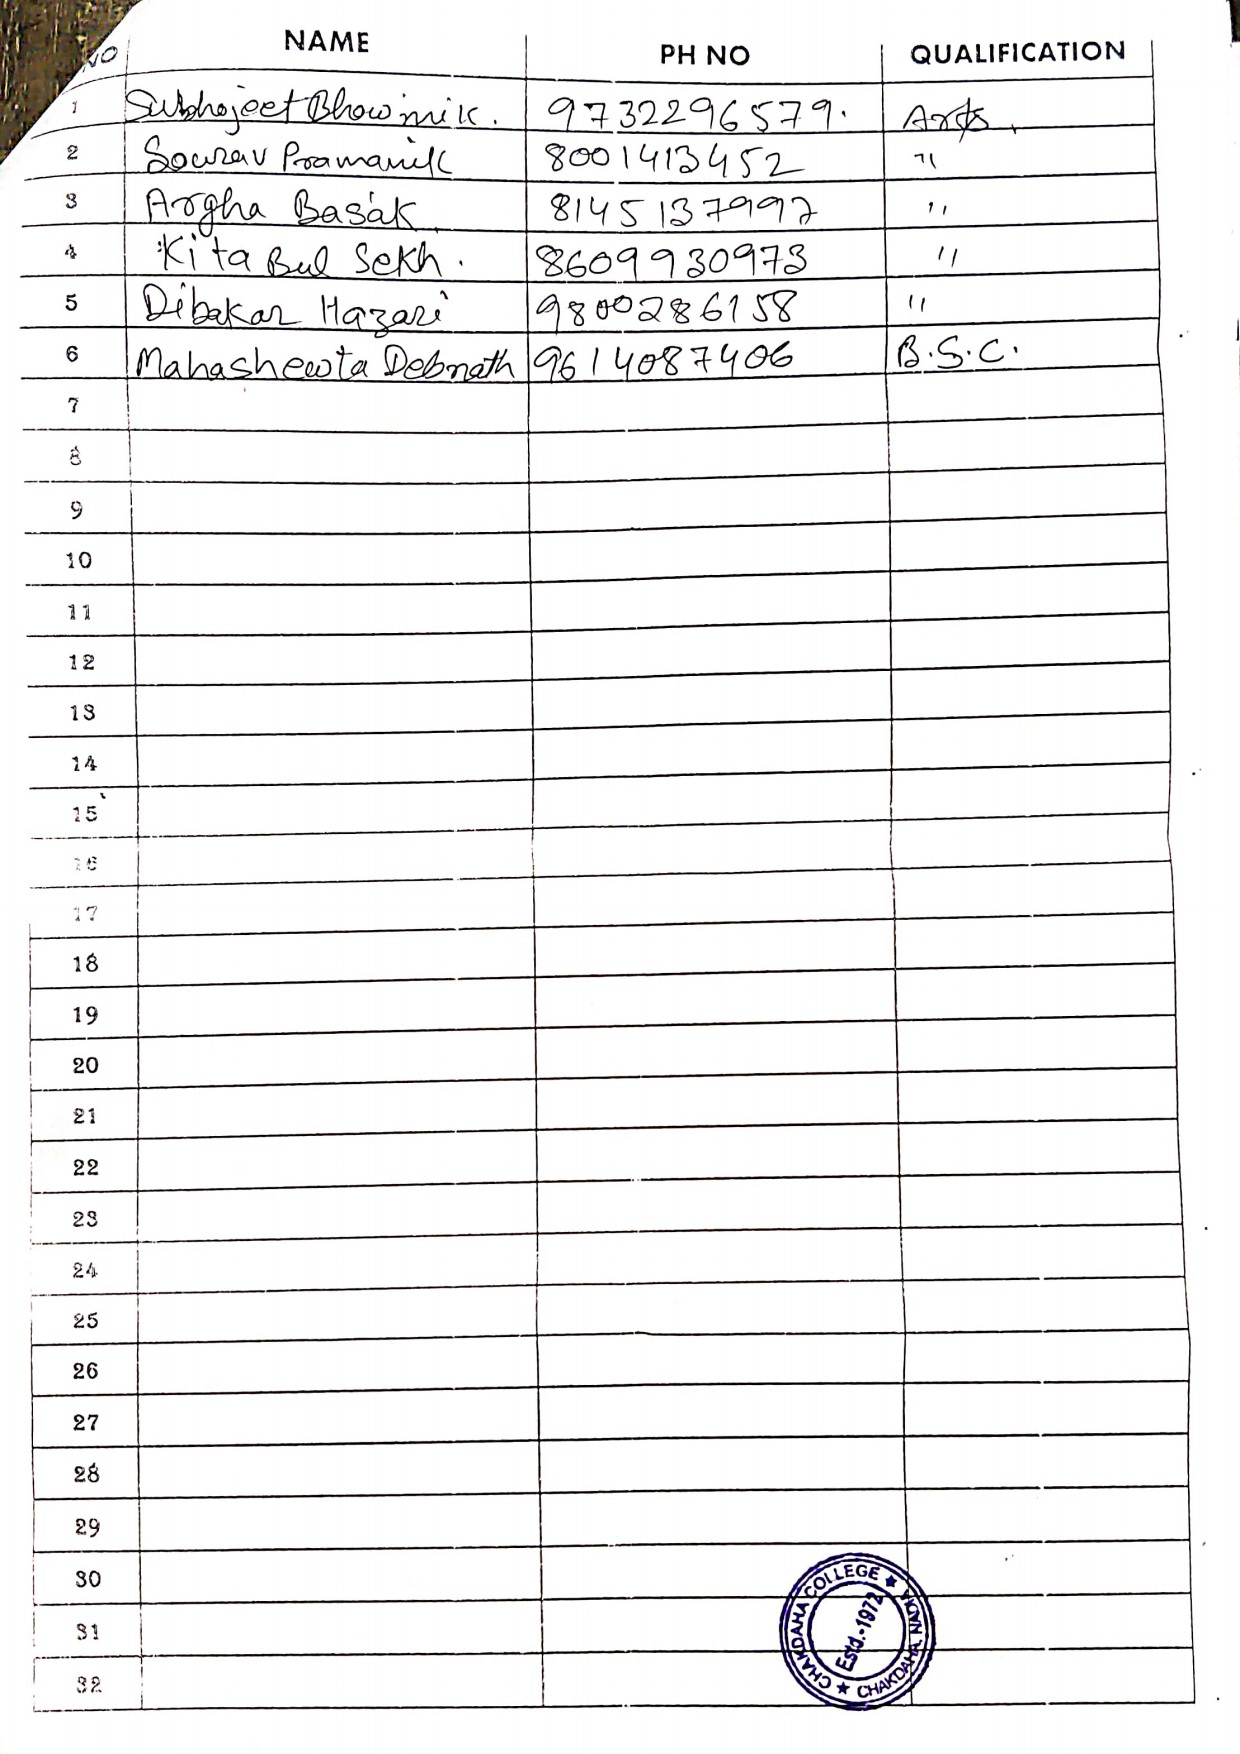 NO NAME PH NO QUALIFICATION
1 Subhojeet Bhowmik. 9732296579. Arts.
2 Sourav Pramanik 8001413452 "
3 Argha Basak 8145137997 "
4 Kita Bul Sekh. 8609930973 "
5 Dibakar Hazari 9800286158 "
6 Mahashewta Debnath 9614087406 B.S.C.
7
8
9
10
11
12
13
14
15
16
17
18
19
20
21
22
23
24
25
26
27
28
29
30
31
32
CHAKDAHA COLLEGE ★ CHAKDAHA, NADIA ★
Estd.-1972